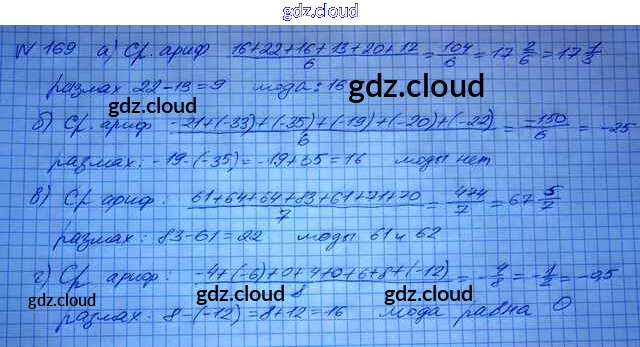 gdz.cloud
N 169 а) Ср. ариф (16+22+16+13+20+17)/6 = 104/6 = 17 2/6 = 17 1/3
размах 22-13=9 мода: 16
gdz.cloud
gdz.cloud
б) Ср. ариф (-21+(-33)+(-35)+(-19)+(-20)+(-22))/6 = -150/6 = -25
gdz.cloud
размах: -19-(-35)=-19+35=16 моды нет
в) Ср ариф: (61+64+64+83+61+71+70)/7 = 474/7 = 67 5/7
gdz.cloud
размах: 83-61=22 моды 61 и 62
г) Ср ариф: (-4+(-6)+0+4+0+6+8+(-12))/8 = -4/8 = -1/2 = -0,5
gdz.cloud gdz.cloud gdz.cloud
размах: 8-(-12)=8+12=16 мода равна 0